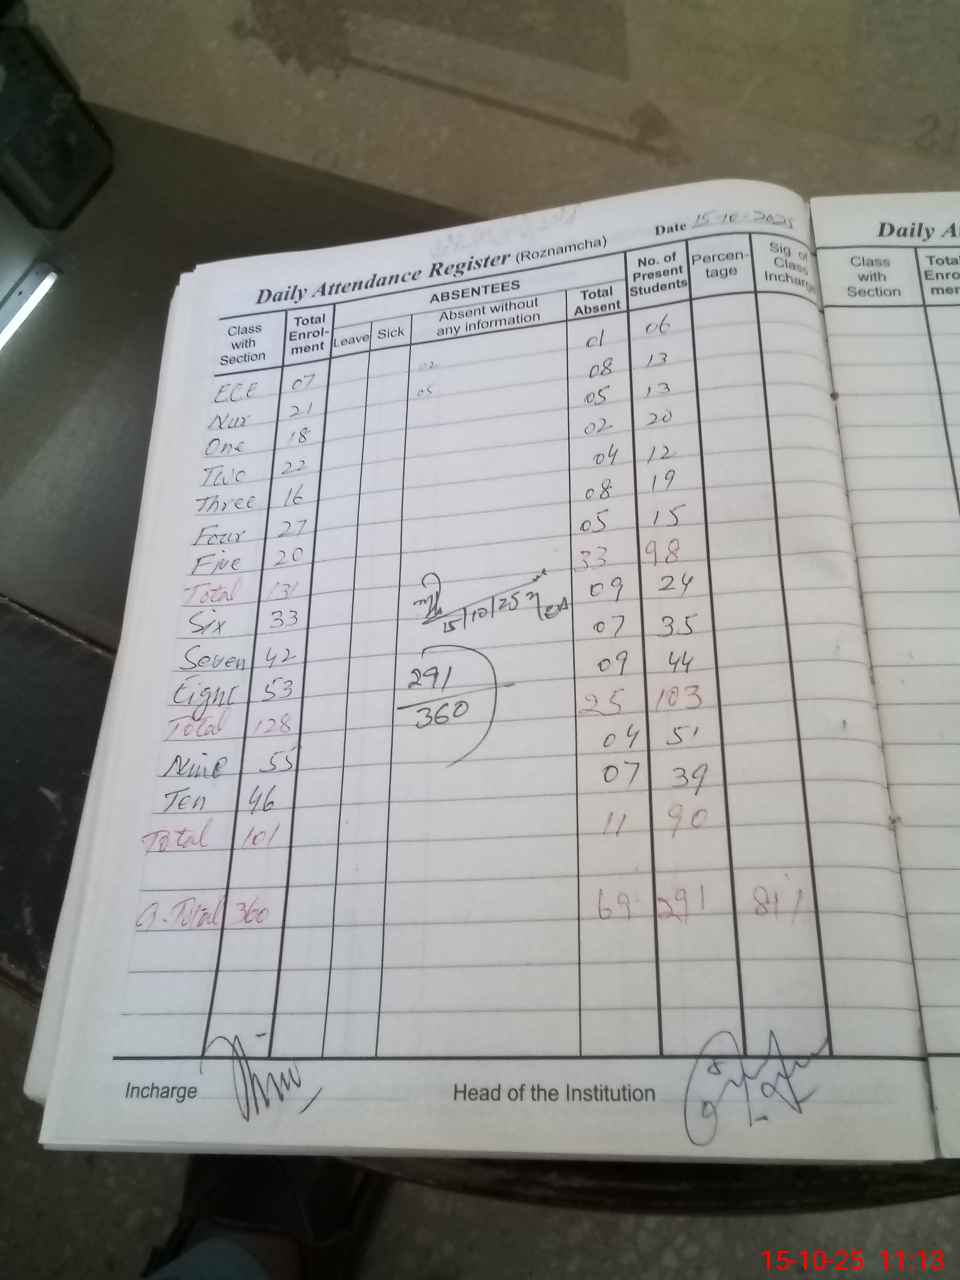 Daily Attendance Register (Roznamcha) Date 15-10-2025
Class with Section Total Enrol-ment ABSENTEES Leave Sick Absent without any information Total Absent No. of Present Students Percen-tage Sig of Class Incharge
ECE 07 02 01 06
Nur 21 05 08 13
One 18 05 13
Two 22 02 20
Three 16 04 12
Four 27 08 19
Five 20 05 15
Total 131 33 98
Six 33 09 24
15/10/25
Seven 42 07 35
Eight 53 291 09 44
Total 128 360 25 103
Nine 55 04 51
Ten 46 07 39
Total 101 11 90
G.Total 360 69 291 81%
Incharge Head of the Institution
Daily A
Class with Section Total Enro men
15-10-25 11:13